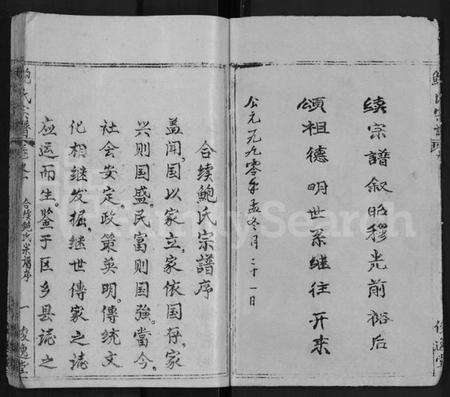 续宗譜叙昭穆光前裕后
頌祖德明世系继往开来
公元一九九零年孟冬月二十一日
合续鲍氏宗譜序
盖闻国以家立。家依国存。家
兴则国盛。民富则国强。當今
社会安定。政策英明。傳统文
化相继发掘。继世傳家之誌
应运而生。鉴于区乡县誌之
合续鲍氏宗譜序
一
FamilySearch